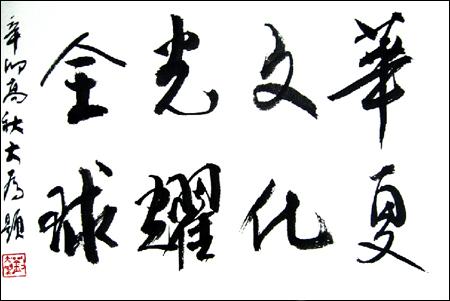 華夏
文化
光耀
全球
辛卯高秋大为题